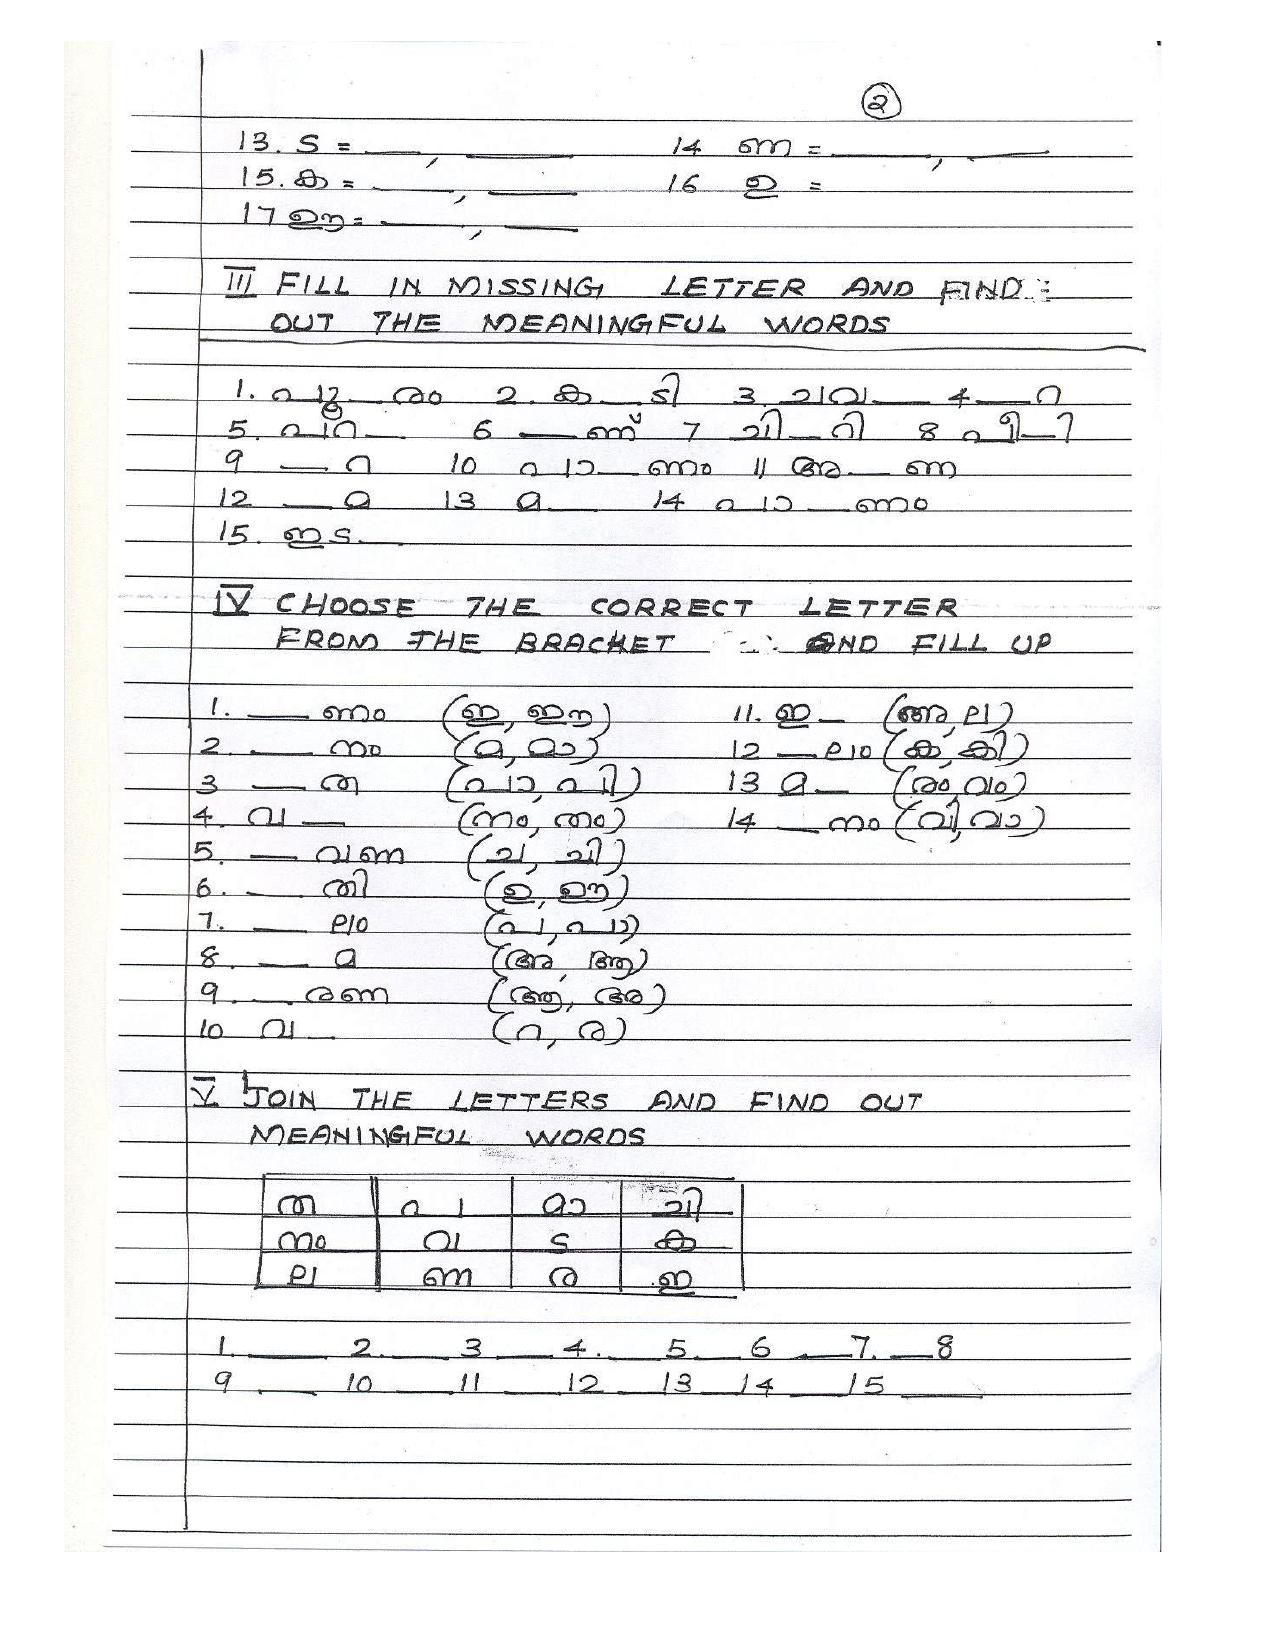 2
13. ട = ___, ___ 14 ണ = ___, ___
15. ക = ___, ___ 16 ഉ =
17 ഊ = ___, ___
III FILL IN MISSING LETTER AND FIND
OUT THE MEANINGFUL WORDS
1. ___ രം 2. ക ___ ടി 3. ചവ ___ 4 ___ റ
5. ___ 6 ___ ണ്ണ് 7 ചി ___ റി 8 ___
9 ___ റ 10 പാ ___ ണം 11 അ ___ ണ
12 ___ മ 13 മ ___ 14 പാ ___ ണം
15. ഇട ___
IV CHOOSE THE CORRECT LETTER
FROM THE BRACKET AND FILL UP
1. ___ ണം (ഇ, ഈ) 11. ഇ ___ (ങ്ങ, ല)
2. ___ നം (മ, മാ) 12 ___ ലം (ക, കി)
3 ___ ത (പാ, പി) 13 മ ___ (രം, വം)
4. വ ___ (നം, തം) 14 ___ നം (വി, വാ)
5. ___ വണ (ച, ചി)
6. ___ തി (ഉ, ഊ)
7. ___ ലം (പ, പാ)
8. ___ മ (അ, ആ)
9 ___ രണ (ആ, അ)
10 വ ___ (റ, ര)
V JOIN THE LETTERS AND FIND OUT
MEANINGFUL WORDS
ത പ മാ ചി
നം വ ട ക
ല ണ ര ഇ
1. ___ 2. ___ 3 ___ 4. ___ 5. ___ 6 ___ 7. ___ 8
9 ___ 10 ___ 11 ___ 12 ___ 13 ___ 14 ___ 15 ___